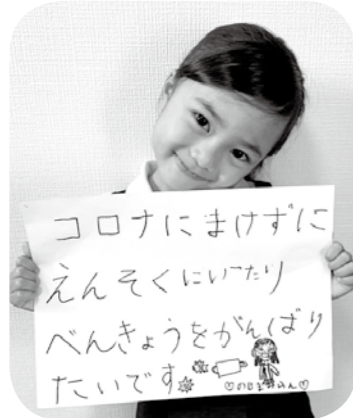 コロナにまけずに
えんそくにいったり
べんきょうをがんばり
たいです